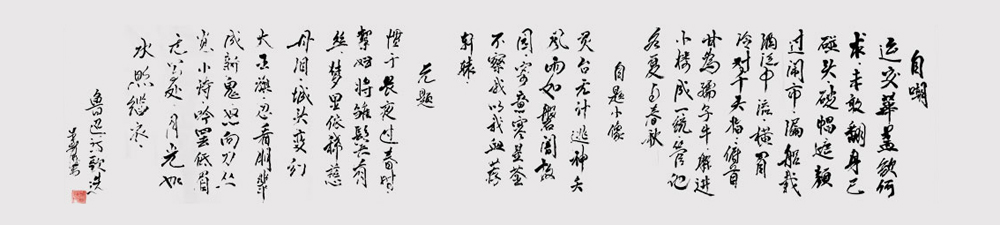 自嘲
运交華蓋欲何
求未敢翻身已
碰头破帽遮颜
过闹市漏船载
酒泛中流横眉
冷对千夫指俯首
甘为孺子牛躲进
小楼成一统管他
冬夏与春秋
自题小像
灵台无计逃神矢
风雨如磐闇故
园寄意寒星荃
不察我以我血荐
轩辕
无题
惯于长夜过春时
挈妇将雏鬓有
丝梦里依稀慈
母泪城头变幻
大王旗忍看朋辈
成新鬼怒向刀丛
觅小诗吟罢低眉
无写处月光如
水照缁衣
鲁迅诗歌选